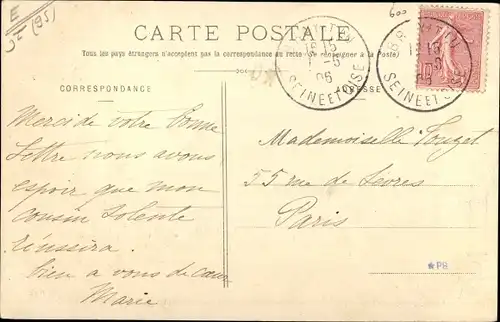 E
(95)
600
CARTE POSTALE
Tous les pays étrangers n'acceptent pas la correspondance au recto (se renseigner à la Poste)
18 15
-5
06
SEINE ET OISE
SEINE ET OISE
10
CORRESPONDANCE
ADRESSE
Merci de votre bonne
lettre nous avons
espoir que mon
cousin
réussira.
bien a vous de cœur
Marie
Mademoiselle Fouget
55 rue de Sèvres
Paris
*PB